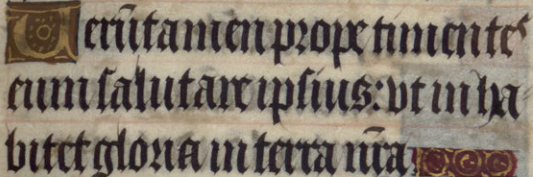 Uerūtamen prope timentes
eum salutare ipsius: vt inha
bitet gloria in terra nr̄a